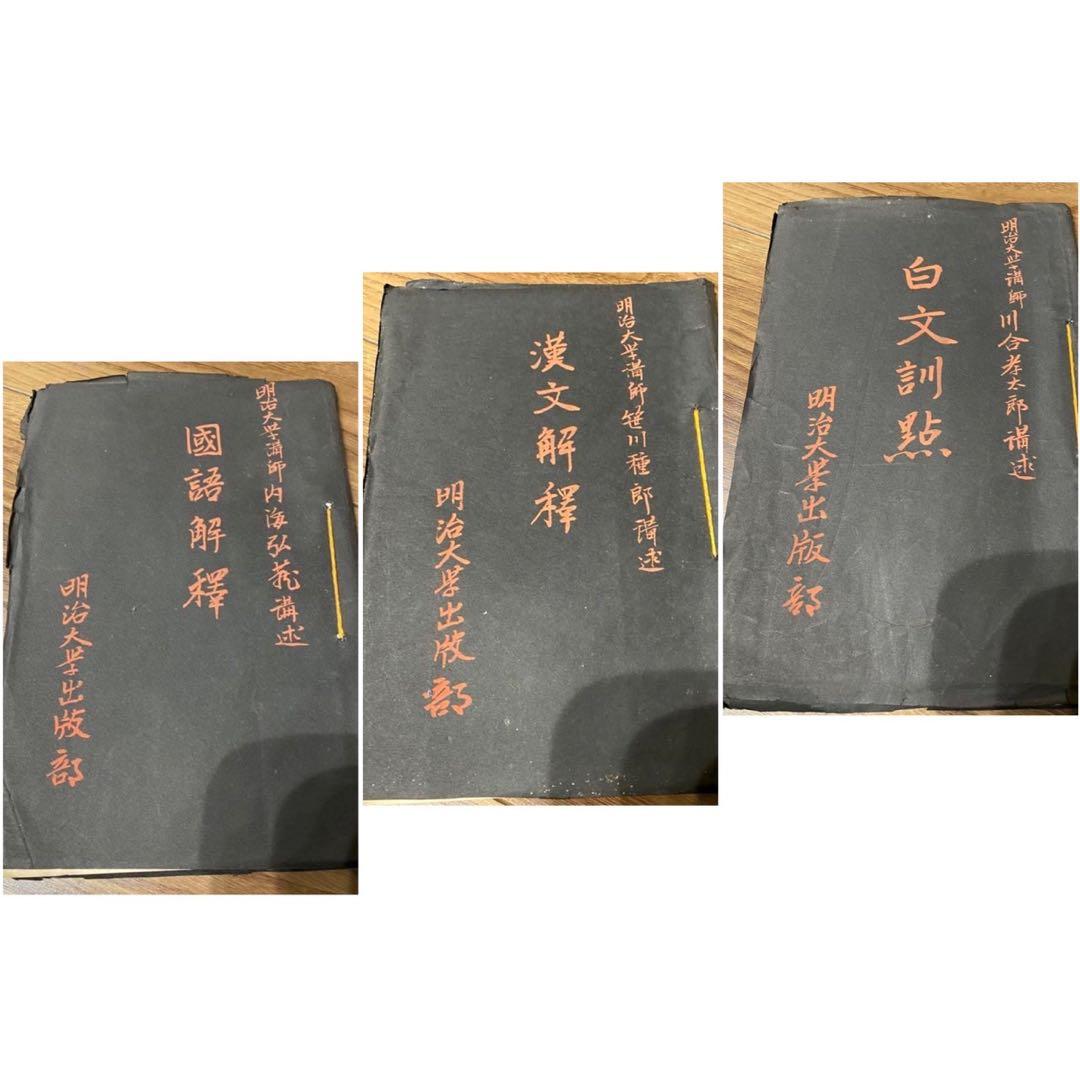 明治大学講師内海弘蔵講述
國語解釋
明治大学出版部
明治大学講師笹川種郎講述
漢文解釋
明治大学出版部
明治大学講師川合孝太郎講述
白文訓點
明治大学出版部